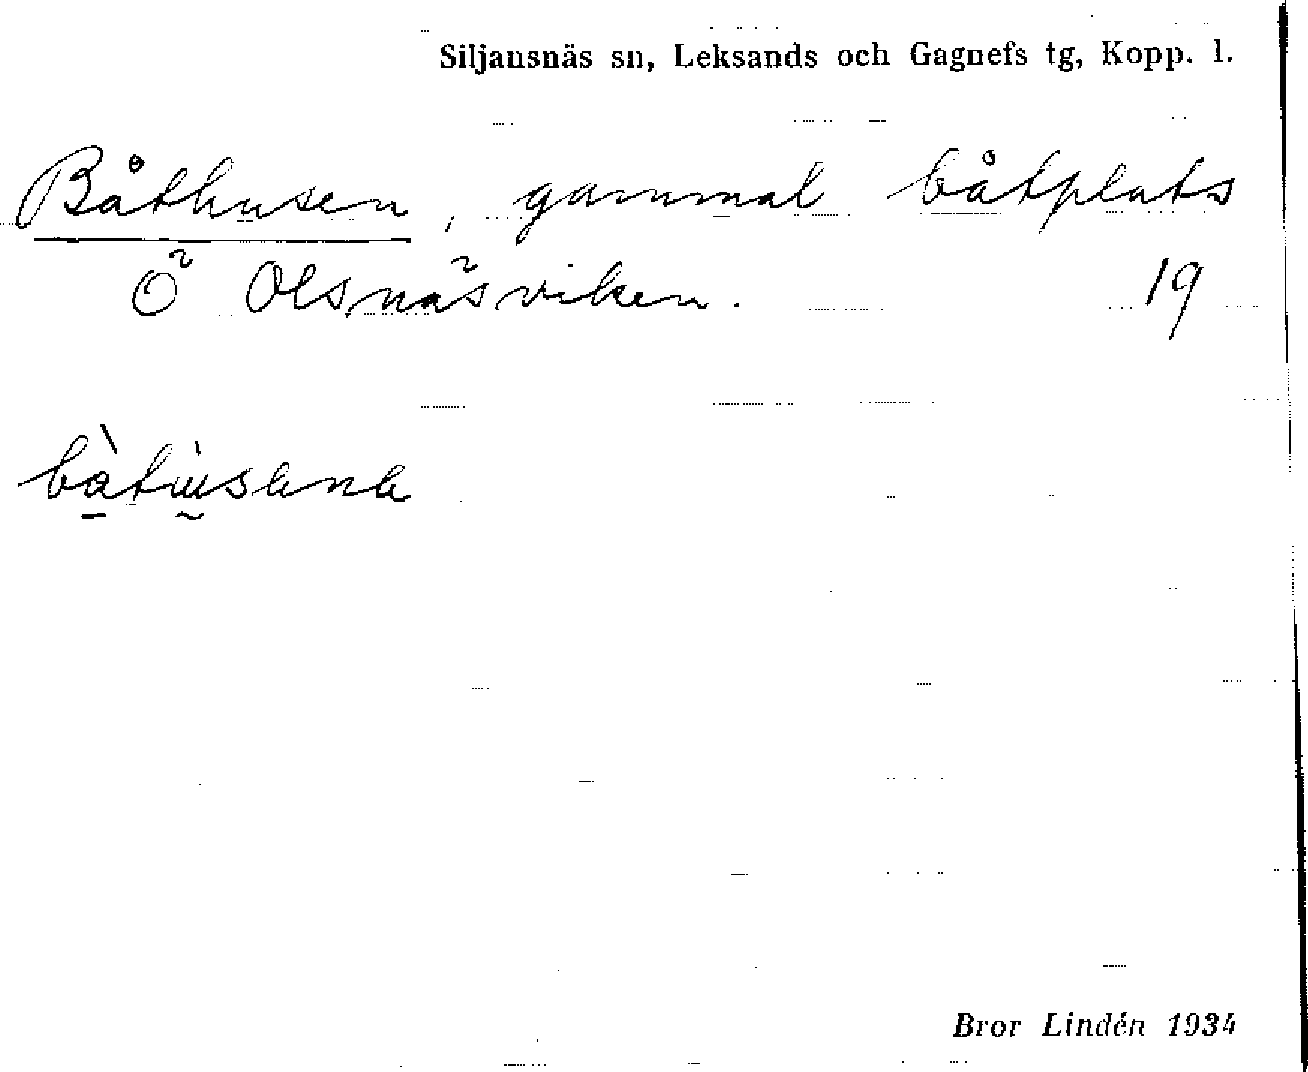 Siljansnäs sn, Leksands och Gagnefs tg, Kopp. l.
Båthusen, gammal båtplats
Ö Olsnäsviken. 19
Bror Lindén 1934